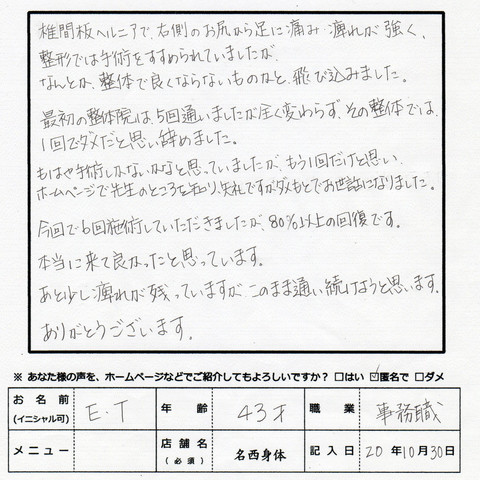 椎間板ヘルニアで、右側のお尻から足に痛み・痺れが強く、
整形では手術をすすめられていましたが、
なんとか、整体で良くならないものかと、飛び込みました。
最初の整体院は、5回通いましたが全く変わらず、その整体では、
1回でダメだと思い辞めました。
もはや手術しかないかなと思っていましたが、もう1回だけと思い、
ホームページで先生のところを知り、失礼ですがダメもとでお世話になりました。
今回で6回施術していただきましたが、80%以上の回復です。
本当に来て良かったと思っています。
あと少し痺れが残っていますが、このまま通い続けようと思います。
ありがとうございます。
※ あなた様の声を、ホームページなどでご紹介してもよろしいですか? □はい ☑匿名で □ダメ
お名前 (イニシャル可) E.T 年齢 43才 職業 事務職
メニュー 店舗名 (必須) 名西身体 記入日 20年10月30日